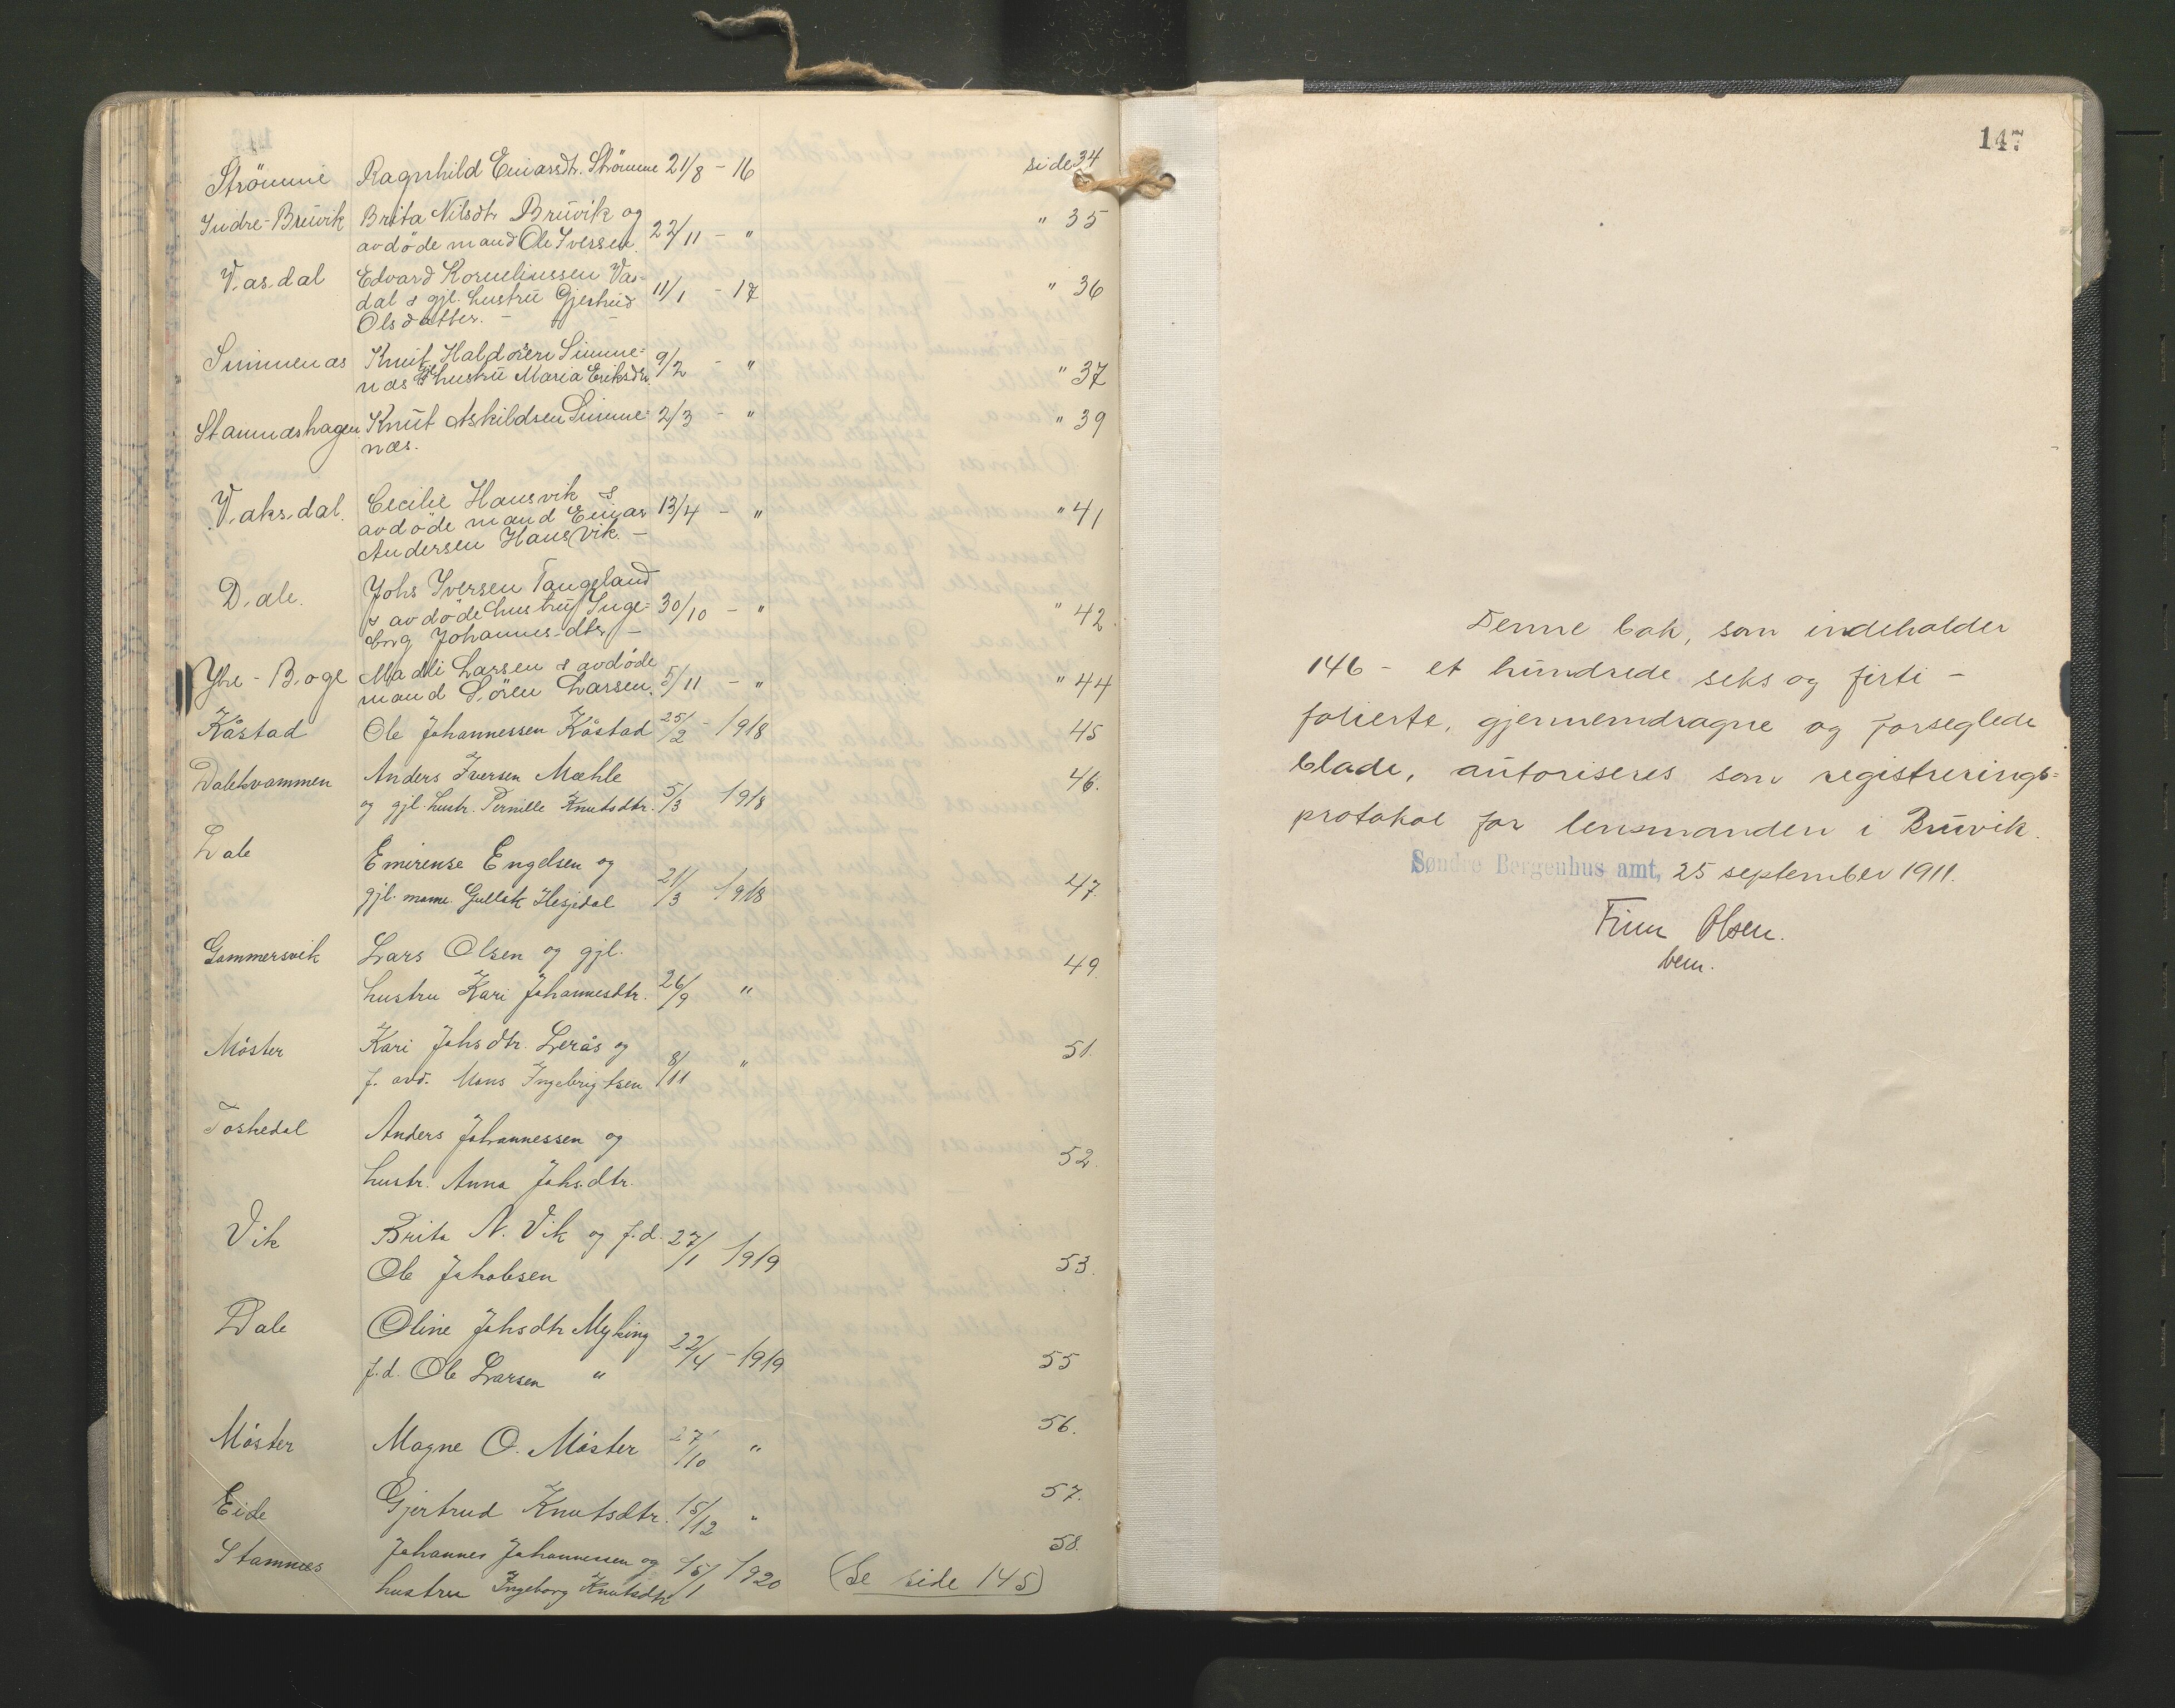 Strömme Ragnhild Einarsdtr. Strömme 21/8 - 16 side 34
Indre-Bruvik Brita Nilsdtr Bruvik og
avdöde mand Ole Iversen. 22/11 - " " 35
Vasdal Edvard Korneliussen Vas-
dal & gjl. hustru Gjertrud 11/1 - 17 " 36
Olsdatter. -
Simmenas Knut Haldorsen Simme-
nas & gjl. hustru Maria Eriksdtr. 9/2 - " " 37
Stamnashagen Knut Askildsen Simme- 2/3 - " " 39
næs.
Vaksdal. Cecilie Hausvik &
avdöde mand Einar 13/4 - " " 41
Andersen Hausvik. -
Dale. Johs Iversen Tangeland
& avdöde hustru Inge- 30/10 - " " 42.
borg Johannes-dtr -
Ytre-Boge Madli Larsen & avdöde
mand Sören Larsen. 5/11 - " " 44
Kåstad Ole Johannessen Kåstad 25/2 - 1918 45
Dalehvammen Anders Iversen Mæhle 46.
og gjl. hustr. Pernille Knutsdtr. 5/3 1918
Dale Emirense Engelsen og
gjl. mann. Gullak Hesjedal 21/3 1918 47.
Gammersvik Lars Olsen og gjl. 49.
hustru Kari Johannesdtr. 26/9 "
Måster Kari Johsdtr. Lerås og 51.
f. avd. Mons Ingebrigtsen 8/11 "
Toskedal Anders Johannessen og
hustr. Anna Johs.dtr. 52.
Vik Brita N. Vik og f.d. 27/1 1919
Ole Jakobsen 53.
Dale Oline Johsdtr Myking 22/4 - 1919
f.d. Ole Larsen " 55
Måster Magne O. Måster 27/10 " 56.
Eide Gjertrud Knutsdtr. 15/12 " 57.
Stamnes Johannes Johannessen og 15/1 1920 58.
hustru Ingeborg Knutsdtr (Se side 145)
147
Denne bok, som indeholder
146 - et hundrede seks og firti -
folierte, gjennemdragne og forseglede
blade, autoriseres som registrerings-
protokol for lensmanden i Bruvik.
Søndre Bergenhus amt, 25 september 1911.
Finn Olsen.
bem.